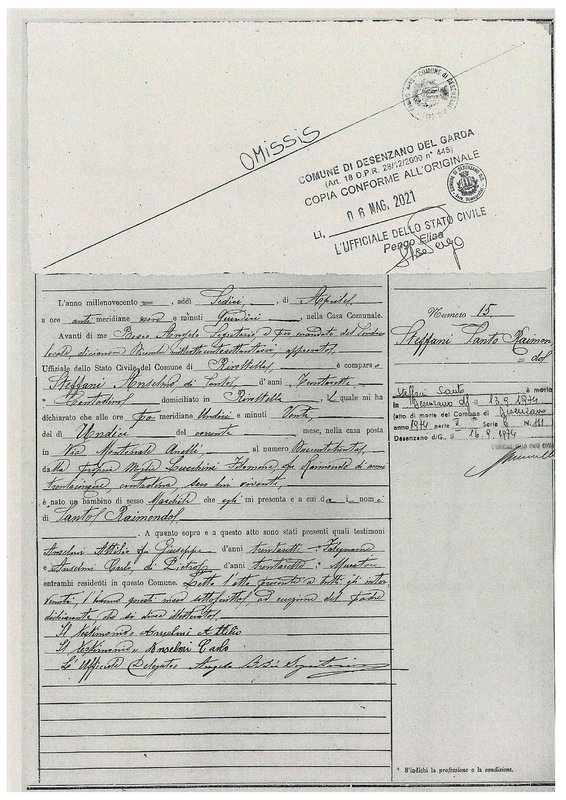 OMISSIS
COMUNE DI DESENZANO DEL GARDA
(Art. 18 D.P.R. 28/12/2000 n° 445)
COPIA CONFORME ALL'ORIGINALE
Li, 06 MAG. 2021
L'UFFICIALE DELLO STATO CIVILE
Pengo Elisa
L'anno millenovecento =, addì Sedici, di Aprile,
a ore anti meridiane e minuti Quindici, nella Casa Comunale.
Avanti di me Segretario
Ufficiale dello Stato Civile del Comune di Rivoltella, è comparso
Steffani Anselmo di Santo, d'anni Trentasette,
Contadino domiciliato in Rivoltella, il quale mi ha
dichiarato che alle ore po meridiane Undici e minuti Venti,
del dì Undici del corrente mese, nella casa posta
in Via al numero
dalla propria Moglie Lucchini Filomena fu Raimondo di anni
trentacinque, contadina seco lui vivente,
è nato un bambino di sesso Maschile che egli mi presenta e a cui da i nomi
di Santo Raimondo
A quanto sopra e a questo atto sono stati presenti quali testimoni
Anselmi Attilio fu Giuseppe d'anni trentasette Falegname
e Anselmi Carlo di Pietro, d'anni trentasette
entrambi residenti in questo Comune. Letto l'atto presente a tutti gli inter
venuti, l'hanno questi meco sottoscritto, ad eccezione del padre
dichiarante che si dice illetterato,
Il testimonio Anselmi Attilio
Il testimonio Anselmi Carlo
L'Ufficiale Delegato Angelo
Numero 15.
Steffani Santo Raimon
do
Steffani Santo è morto
in il 13.9.1974
(atto di morte del Comune di
anno 1974 parte II Serie B N. 111
Desenzano d/G., 16.9.1974
L'UFFICIALE DELLO STATO CIVILE
* S'indichi la professione o la condizione.